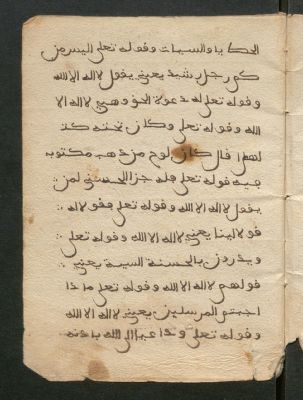 الخطايا والسيات وقوله تعلى اليس من
كم رجل رشيد يعني يقول لا اله الا الله
وقوله تعلى له دعوة الحق وهي لا اله الا
الله وقوله تعلى وكان تحته كنز
لهما قال كان لوح من ذهب مكتوب
فيه قوله تعلى فله جزا الحسنى لمن
يقول لا اله الا الله وقوله تعلى فقولا له
قولا لينا يعني لا اله الا الله وقوله تعلى
ويدرون بالحسنة السيية يعني
قولهم لا اله الا الله وقوله تعلى ماذا
اجبتم المرسلين يعني لا اله الا الله
وقوله تعلى وداعيا الى الله باذنه